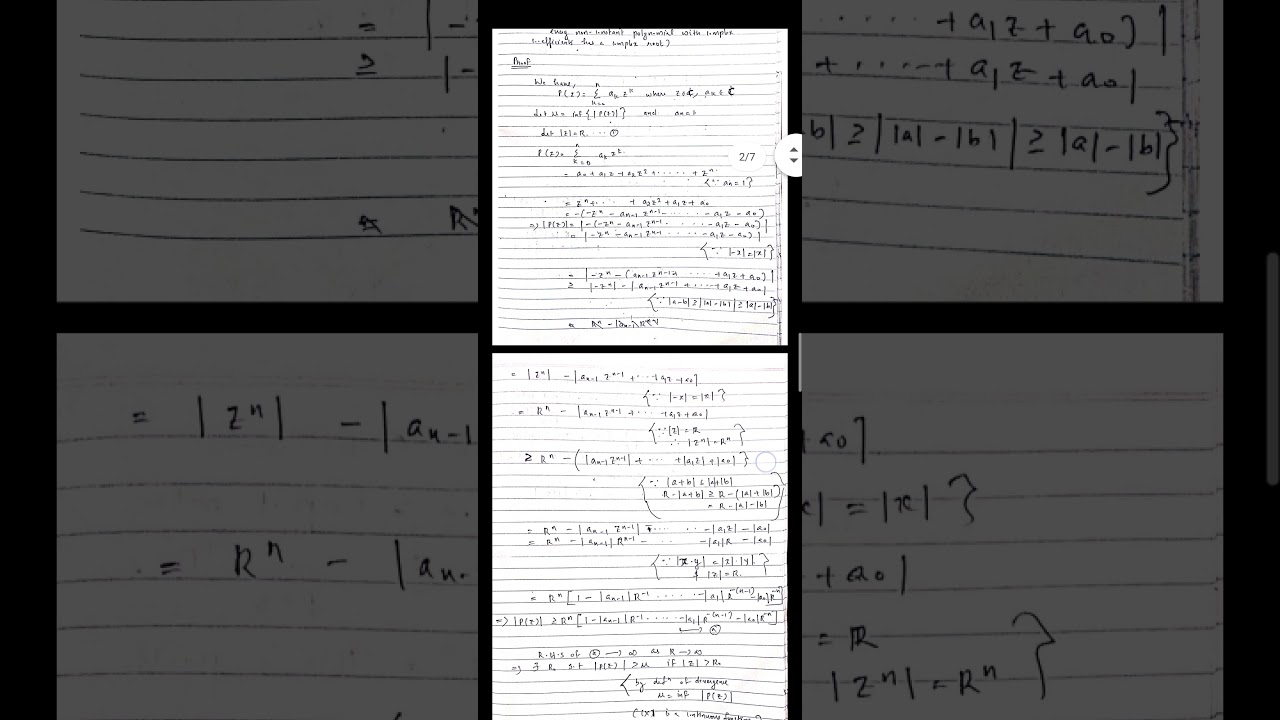 every non-constant polynomial with complex
coefficients has a complex root)
Proof
We have,
P(z) = Σ_{k=0}^{n} a_k z^k where z∈ℂ, a_k ∈ ℂ
Let μ = inf{|P(z)|} and a_n=1
Let |z|=R. ... ①
P(z) = Σ_{k=0}^{n} a_k z^k.
= a0 + a1z + a2z² + ...... + zⁿ
{∵ an=1}
= zⁿ + ..... + a2z² + a1z + a0
= -(-zⁿ - an-1 zⁿ⁻¹ ...... - a1z - a0)
⇒ |P(z)| = |-(-zⁿ - an-1 zⁿ⁻¹ ...... - a1z - a0)|
= |-zⁿ - an-1 zⁿ⁻¹ ...... - a1z - a0)|
{∵ |-x| = |x|}
= |-zⁿ - (an-1 zⁿ⁻¹+ ..... + a1z + a0)|
≥ |-zⁿ| - |an-1 zⁿ⁻¹ + ..... + a1z + a0|
{∵ |a-b| ≥ ||a|-|b|| ≥ |a|-|b|}
2/7
= |zⁿ| - |an-1 zⁿ⁻¹ + ... + a1z + a0|
{∵ |-x| = |x|}
= Rⁿ - |an-1 zⁿ⁻¹ + ... + a1z + a0|
{∵ |z| = R
∴ |zⁿ| = Rⁿ}
≥ Rⁿ - (|an-1 zⁿ⁻¹| + ... + |a1z| + |a0|}
{∵ |a+b| ≤ |a|+|b|
R - |a+b| ≥ R - (|a|+|b|)
= R - |a| - |b|}
= Rⁿ - |an-1 zⁿ⁻¹| - ..... - |a1z| - |a0|
= Rⁿ - |an-1| Rⁿ⁻¹ - ..... - |a1|R - |a0|
{∵ |x·y| = |x|·|y|
& |z| = R.}
= Rⁿ [1 - |an-1|R⁻¹ ...... - |a1|R^{-(n-1)} - |a0|R⁻ⁿ]
⇒ |P(z)| ≥ Rⁿ [1 - |an-1|R⁻¹ ...... - |a1|R^{-(n-1)} - |a0|R⁻ⁿ]
R.H.S of ⟶ ∞ as R → ∞
⇒ ∃ R0 s.t |P(z)| > μ if |z| > R0
{by defn of divergence
μ = inf |P(z)|
is a continuous function
= |-
≥ |-
Rⁿ
+ a1z + a0)|
+ ..... + a1z + a0|
b| ≥ ||a| - |b|| ≥ |a| - |b|}
= |zⁿ| - |an-1
= Rⁿ - |an-
a0|
x| = |x|}
+ a0|
= R
|zⁿ| = Rⁿ}